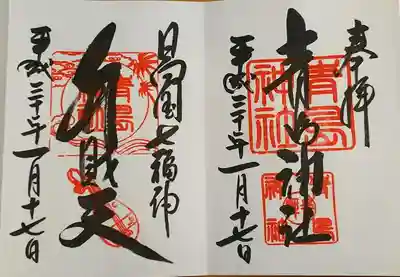 奉拝
青島神社
平成三十年一月十七日
青島
神社
日向国七福神
弁財天
平成三十年一月十七日
青島
神社